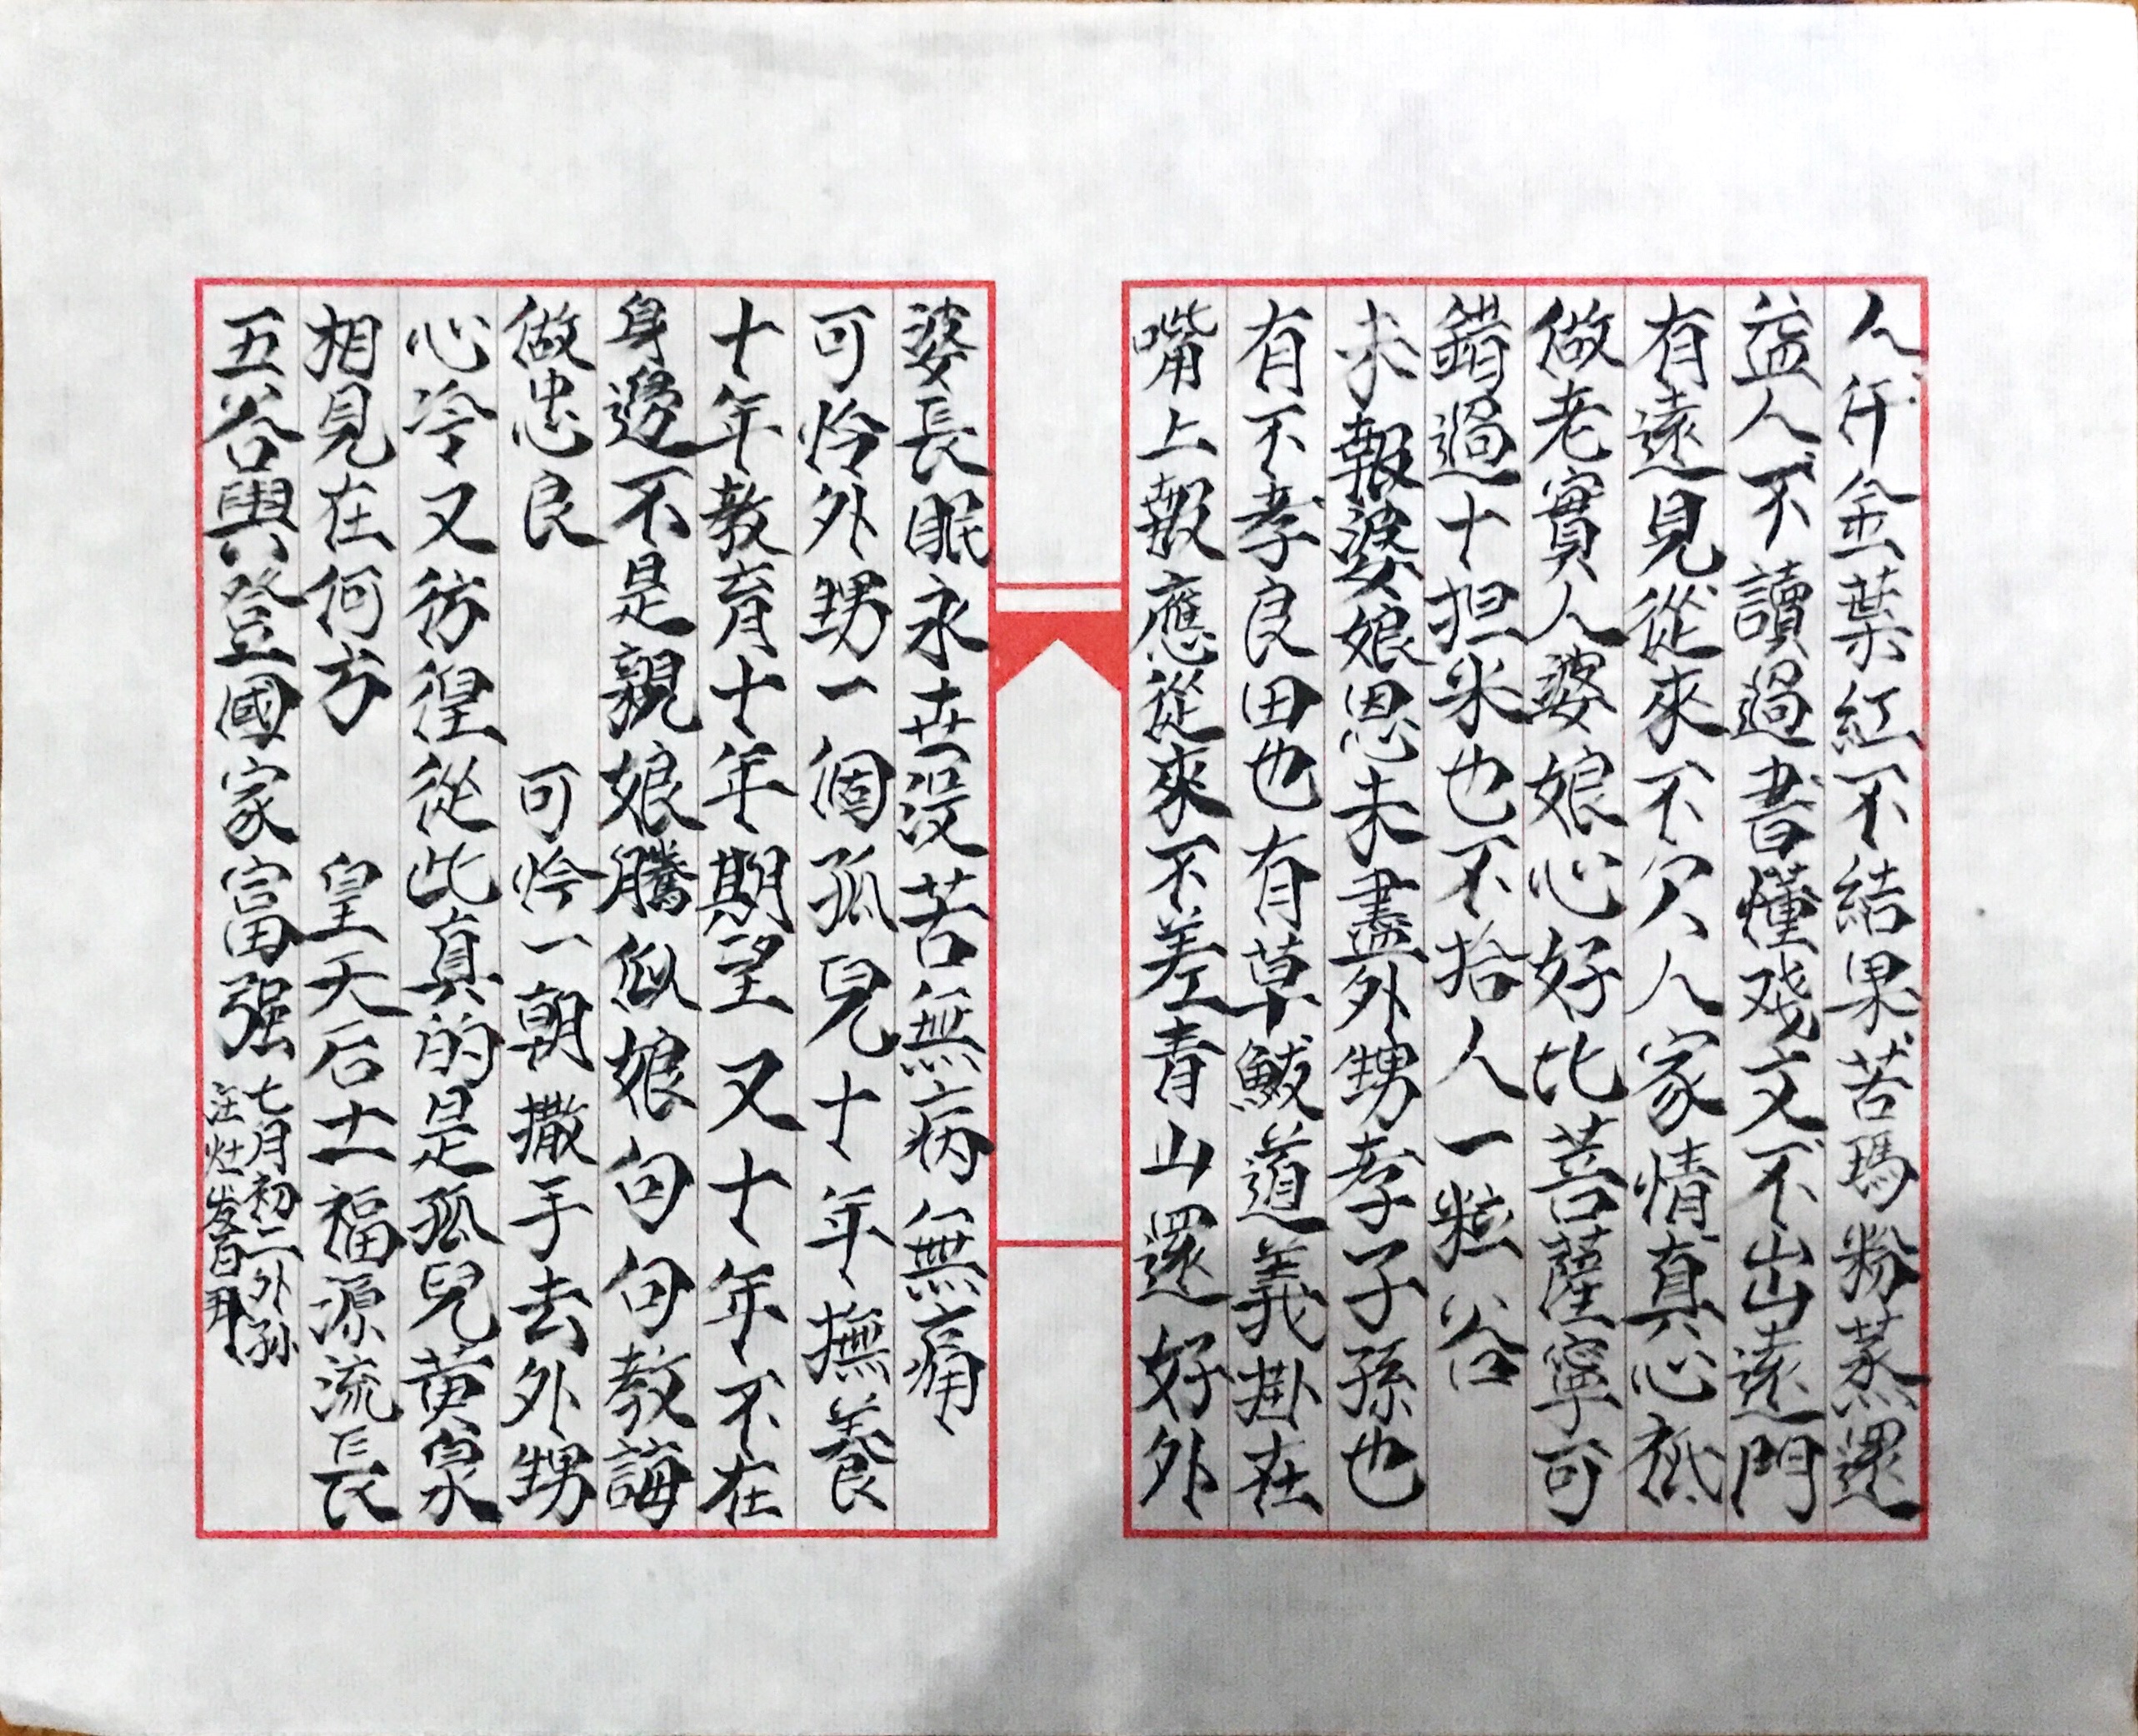 人仟金葉紅不結果苦瑪粉蒸還
益人不讀過書懂戏文不出遠門
有遠見從來不穴人家情真心祗
做老實人婆娘心好比菩薩寧可
錯過十担米也不拾人一粒谷
未報婆娘恩未盡外甥孝子孫也
有不孝良田也有草鮁道義掛在
嘴上報應從來不差青山還好外
婆長眠永世没苦無病無痛
可怜外甥一個孤兒十年撫養
十年教育十年期望又十年不在
身邊不是親娘騰似娘句句教誨
做忠良 可怜一朝撒手去外甥
心冷又彷徨從此真的是孤兒黄泉
相見在何方 皇天后土福源流長
五谷興登國家富强
七月初二外孙
汪灶发百拜